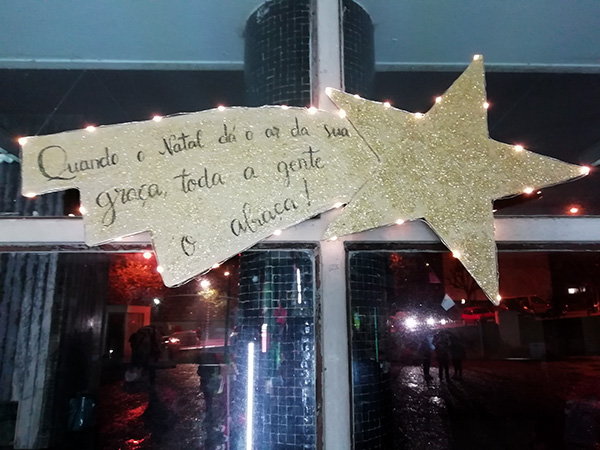 Quando o Natal dá o ar da sua
graça, toda a gente
o abraça!